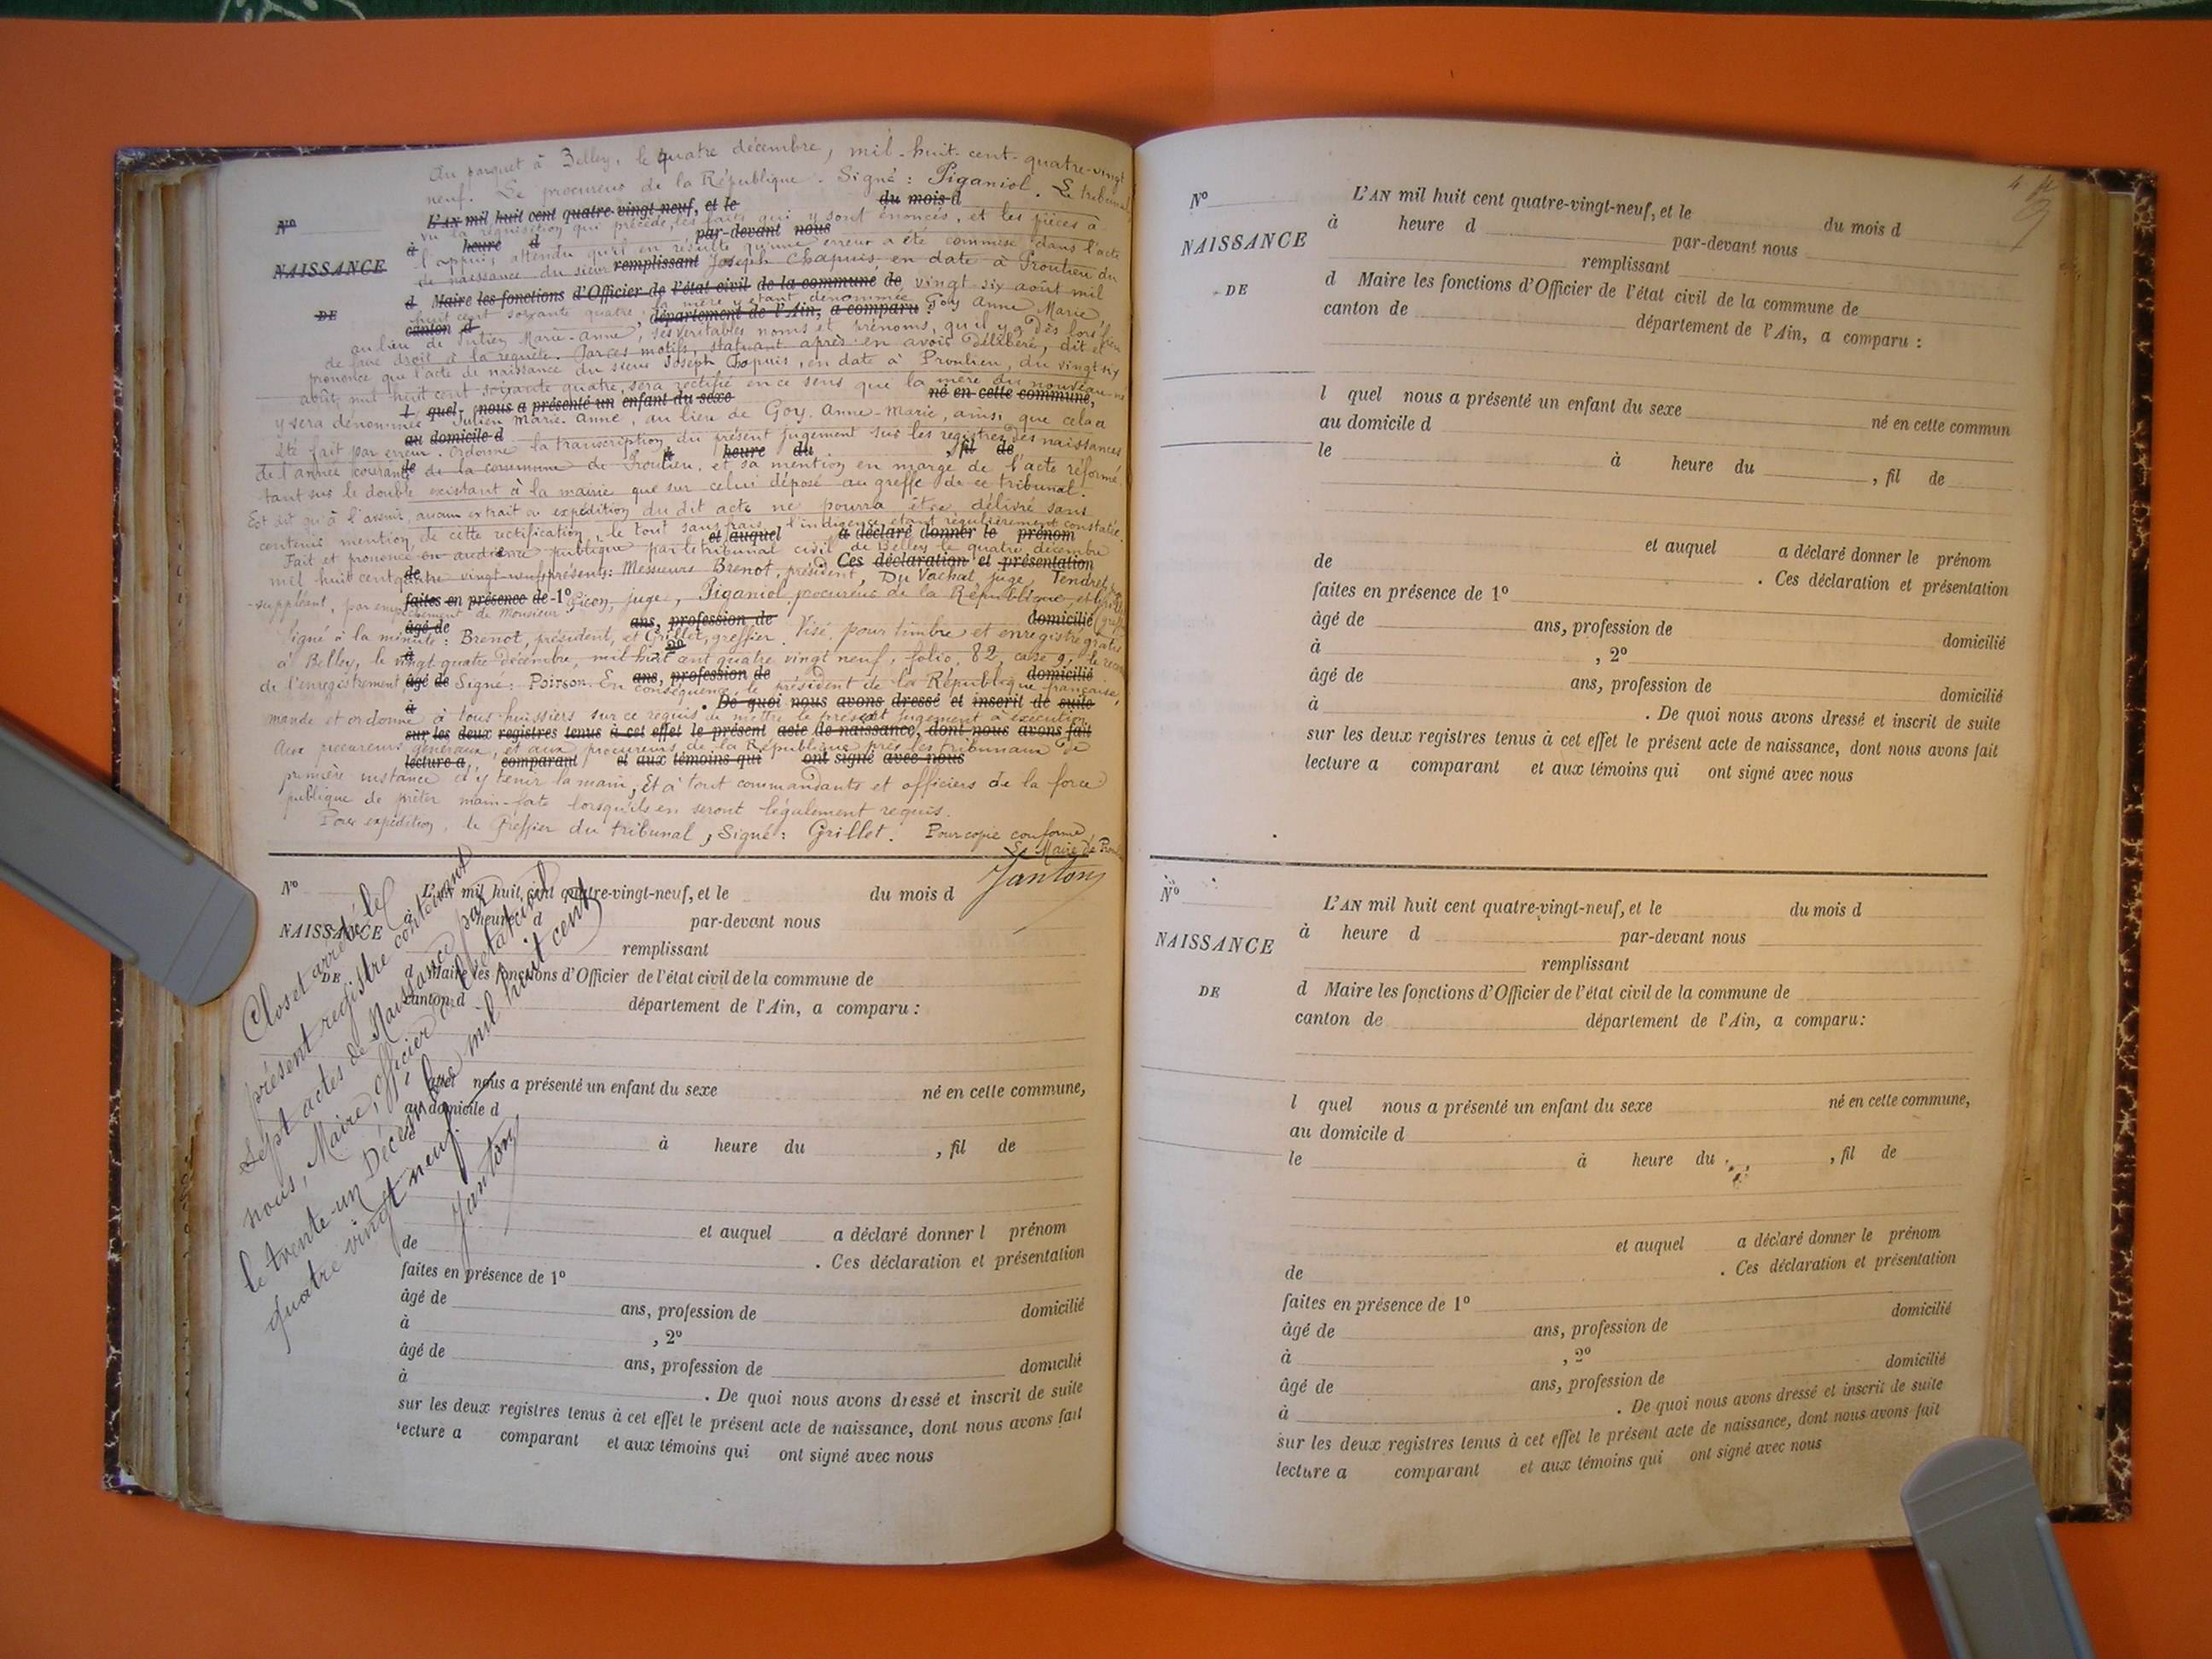 Au parquet à Belley, le quatre décembre, mil-huit-cent-quatre-vingt
neuf. Le procureur de la République. Signé: Piganiol. Le tribunal,
Nº
L'AN mil huit cent quatre-vingt-neuf, et le du mois d
vu la réquisition qui précède, les faits qui y sont énoncés, et les pièces à
à heure d par-devant nous
l'appui, attendu qu'il en résulte qu'une erreur a été commise dans l'acte
NAISSANCE
de naissance du sieur Joseph Chapuis, en date à Proulieu du
remplissant
d Maire les fonctions d'Officier de l'état civil de la commune de
vingt six août mil
DE
huit cent soixante quatre, la mère y étant dénommée Goy Anne Marie,
canton d département de l'Ain, a comparu :
au lieu de Marie-Anne, ses véritables noms et prénoms, qu'il y a dès lors lieu
de faire droit à la requête. Par ces motifs, statuant après en avoir délibéré, dit et
prononce que l'acte de naissance du sieur Joseph Chapuis, en date à Proulieu, du vingt-six
août, mil huit cent soixante quatre, sera rectifié en ce sens que la mère du nouveau-né
l quel nous a présenté un enfant du sexe né en cette commune,
y sera dénommée Marie-Anne, au lieu de Goy Anne-Marie, ainsi que cela a
au domicile d
été fait par erreur. Ordonne la transcription du présent jugement sur les registres des naissances
le à heure du , fil de
de l'année courante de la commune de Proulieu, et sa mention en marge de l'acte réformé,
tant sur le double existant à la mairie que sur celui déposé au greffe de ce tribunal.
Est dit qu'à l'avenir, aucun extrait ou expédition du dit acte ne pourra être délivré sans
contenir mention de cette rectification, le tout sans frais, l'indigence étant régulièrement constatée.
et auquel a déclaré donner le prénom
Fait et prononcé en audience publique par le tribunal civil de Belley le quatre décembre
de Ces déclaration et présentation
mil huit cent quatre vingt-neuf, présents: Messieurs Brenot, président, Du Vachat, juge, Tendret,
faites en présence de 1º
suppléant, par empêchement de Monsieur juge, Piganiol procureur de la République, et
âgé de ans, profession de domicilié
Signé à la minute: Brenot, président, et Grillet, greffier. Visé pour timbre et enregistré gratis
à , 2º
à Belley, le vingt quatre décembre, mil huit cent quatre vingt neuf, folio 82, case 9, le
âgé de ans, profession de domicilié
de l'enregistrement, Signé: Poirson. En conséquence, le président de la République française,
à . De quoi nous avons dressé et inscrit de suite
mande et ordonne à tous huissiers sur ce requis de mettre le présent jugement à exécution.
sur les deux registres tenus à cet effet le présent acte de naissance, dont nous avons fait
Aux procureurs généraux, et aux procureurs de la République près les tribunaux de
lecture a comparant et aux témoins qui ont signé avec nous
première instance d'y tenir la main, Et à tout commandants et officiers de la force
publique de prêter main-forte lorsqu'ils en seront légalement requis.
Pour expédition, le Greffier du tribunal, Signé: Grillet. Pour copie conforme
Le Maire de
Janton
Nº
L'AN mil huit cent quatre-vingt-neuf, et le du mois d
à heure d par-devant nous
NAISSANCE
remplissant
DE
d Maire les fonctions d'Officier de l'état civil de la commune de
canton d département de l'Ain, a comparu :
l quel nous a présenté un enfant du sexe né en cette commune,
au domicile d
à heure du , fil de
et auquel a déclaré donner l prénom
de . Ces déclaration et présentation
faites en présence de 1º
âgé de ans, profession de domicilié
à , 2º
âgé de ans, profession de domicilié
à . De quoi nous avons dressé et inscrit de suite
sur les deux registres tenus à cet effet le présent acte de naissance, dont nous avons fait
lecture a comparant et aux témoins qui ont signé avec nous
Clos et arrêté le
présent registre contenant
sept actes de Naissance par
nous, Maire, officier de l'état civil
le trente-un Décembre mil huit cent
quatre vingt neuf.
Janton
Nº
L'AN mil huit cent quatre-vingt-neuf, et le du mois d
à heure d par-devant nous
NAISSANCE
remplissant
DE
d Maire les fonctions d'Officier de l'état civil de la commune de
canton de département de l'Ain, a comparu :
l quel nous a présenté un enfant du sexe
né en cette commun
au domicile d
le à heure du , fil de
et auquel a déclaré donner le prénom
de . Ces déclaration et présentation
faites en présence de 1º
âgé de ans, profession de domicilié
à , 2º
âgé de ans, profession de domicilié
à . De quoi nous avons dressé et inscrit de suite
sur les deux registres tenus à cet effet le présent acte de naissance, dont nous avons fait
lecture a comparant et aux témoins qui ont signé avec nous
Nº
L'AN mil huit cent quatre-vingt-neuf, et le du mois d
à heure d par-devant nous
NAISSANCE
remplissant
DE
d Maire les fonctions d'Officier de l'état civil de la commune de
canton de département de l'Ain, a comparu :
l quel nous a présenté un enfant du sexe né en cette commune,
au domicile d
le à heure du , fil de
et auquel a déclaré donner le prénom
de . Ces déclaration et présentation
faites en présence de 1º
âgé de ans, profession de domicilié
à , 2º
âgé de ans, profession de domicilié
à . De quoi nous avons dressé et inscrit de suite
sur les deux registres tenus à cet effet le présent acte de naissance, dont nous avons fait
lecture a comparant et aux témoins qui ont signé avec nous